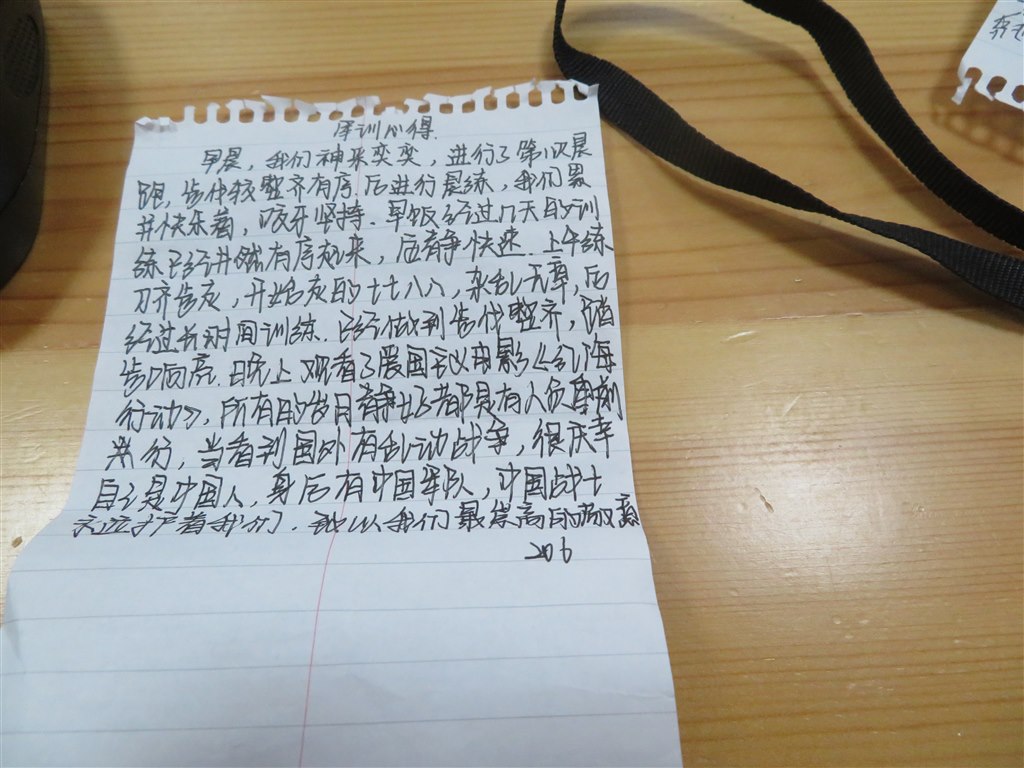 军训心得
早晨，我们神采奕奕，进行了第一次晨
跑，步伐较整齐有序.后进行晨练，我们累
并快乐着，咬牙坚持.早饭经过几天的训
练已经井然有序起来，后有静快速.上午练
习齐步走，开始走的七七八八，杂乱无章，后
经过长时间训练.已经做到步伐整齐，踏
步响亮.晚上观看了爱国主义电影《红海
行动》，所有的岁月静好都是有人负重前
行，当看到国外有乱动战争，很庆幸
自己是中国人，身后有中国军队，中国战士
守护着我们.我们最崇高的敬意
206